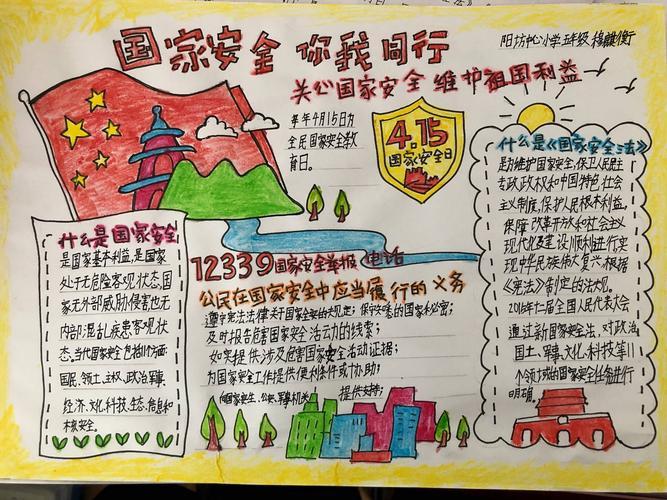 国家安全 你我同行
阳坊中心小学五年级
关心国家安全 维护祖国利益
每年4月15日为
全民国家安全教
育日。
4.15
国家安全日
什么是《国家安全法》
是为维护国家安全,保卫人民民主
专政政权和中国特色社会
主义制度,保护人民根本利益,
保障改革开放和社会主义
现代化建设顺利进行实
现中华民族伟大复兴,根据
《宪法》制定的法规。
2016年十二届全国人民代表大会
通过新国家安全法、对政治
国土、军事、文化、科技等11
个领域的国家安全任务进行
明确。
什么是国家安全
是国家基本利益,是国家
处于无危险客观状态,国
家无外部威胁、侵害也无
内部混乱疾患客观状
态,当代国家安全包括11个方面:
国民、领土、主权、政治、军事、
经济、文化、科技、生态、信息和
核安全。
12339国家安全举报电话
公民在国家安全中应当履行的义务
遵守宪法法律关于国家安全的有关规定;保守知悉的国家秘密;
及时报告危害国家安全活动的线索;
如实提供涉及危害国家安全活动证据;
为国家安全工作提供便利条件或协助;
向国家安全、公安、军事机关 提供支持;